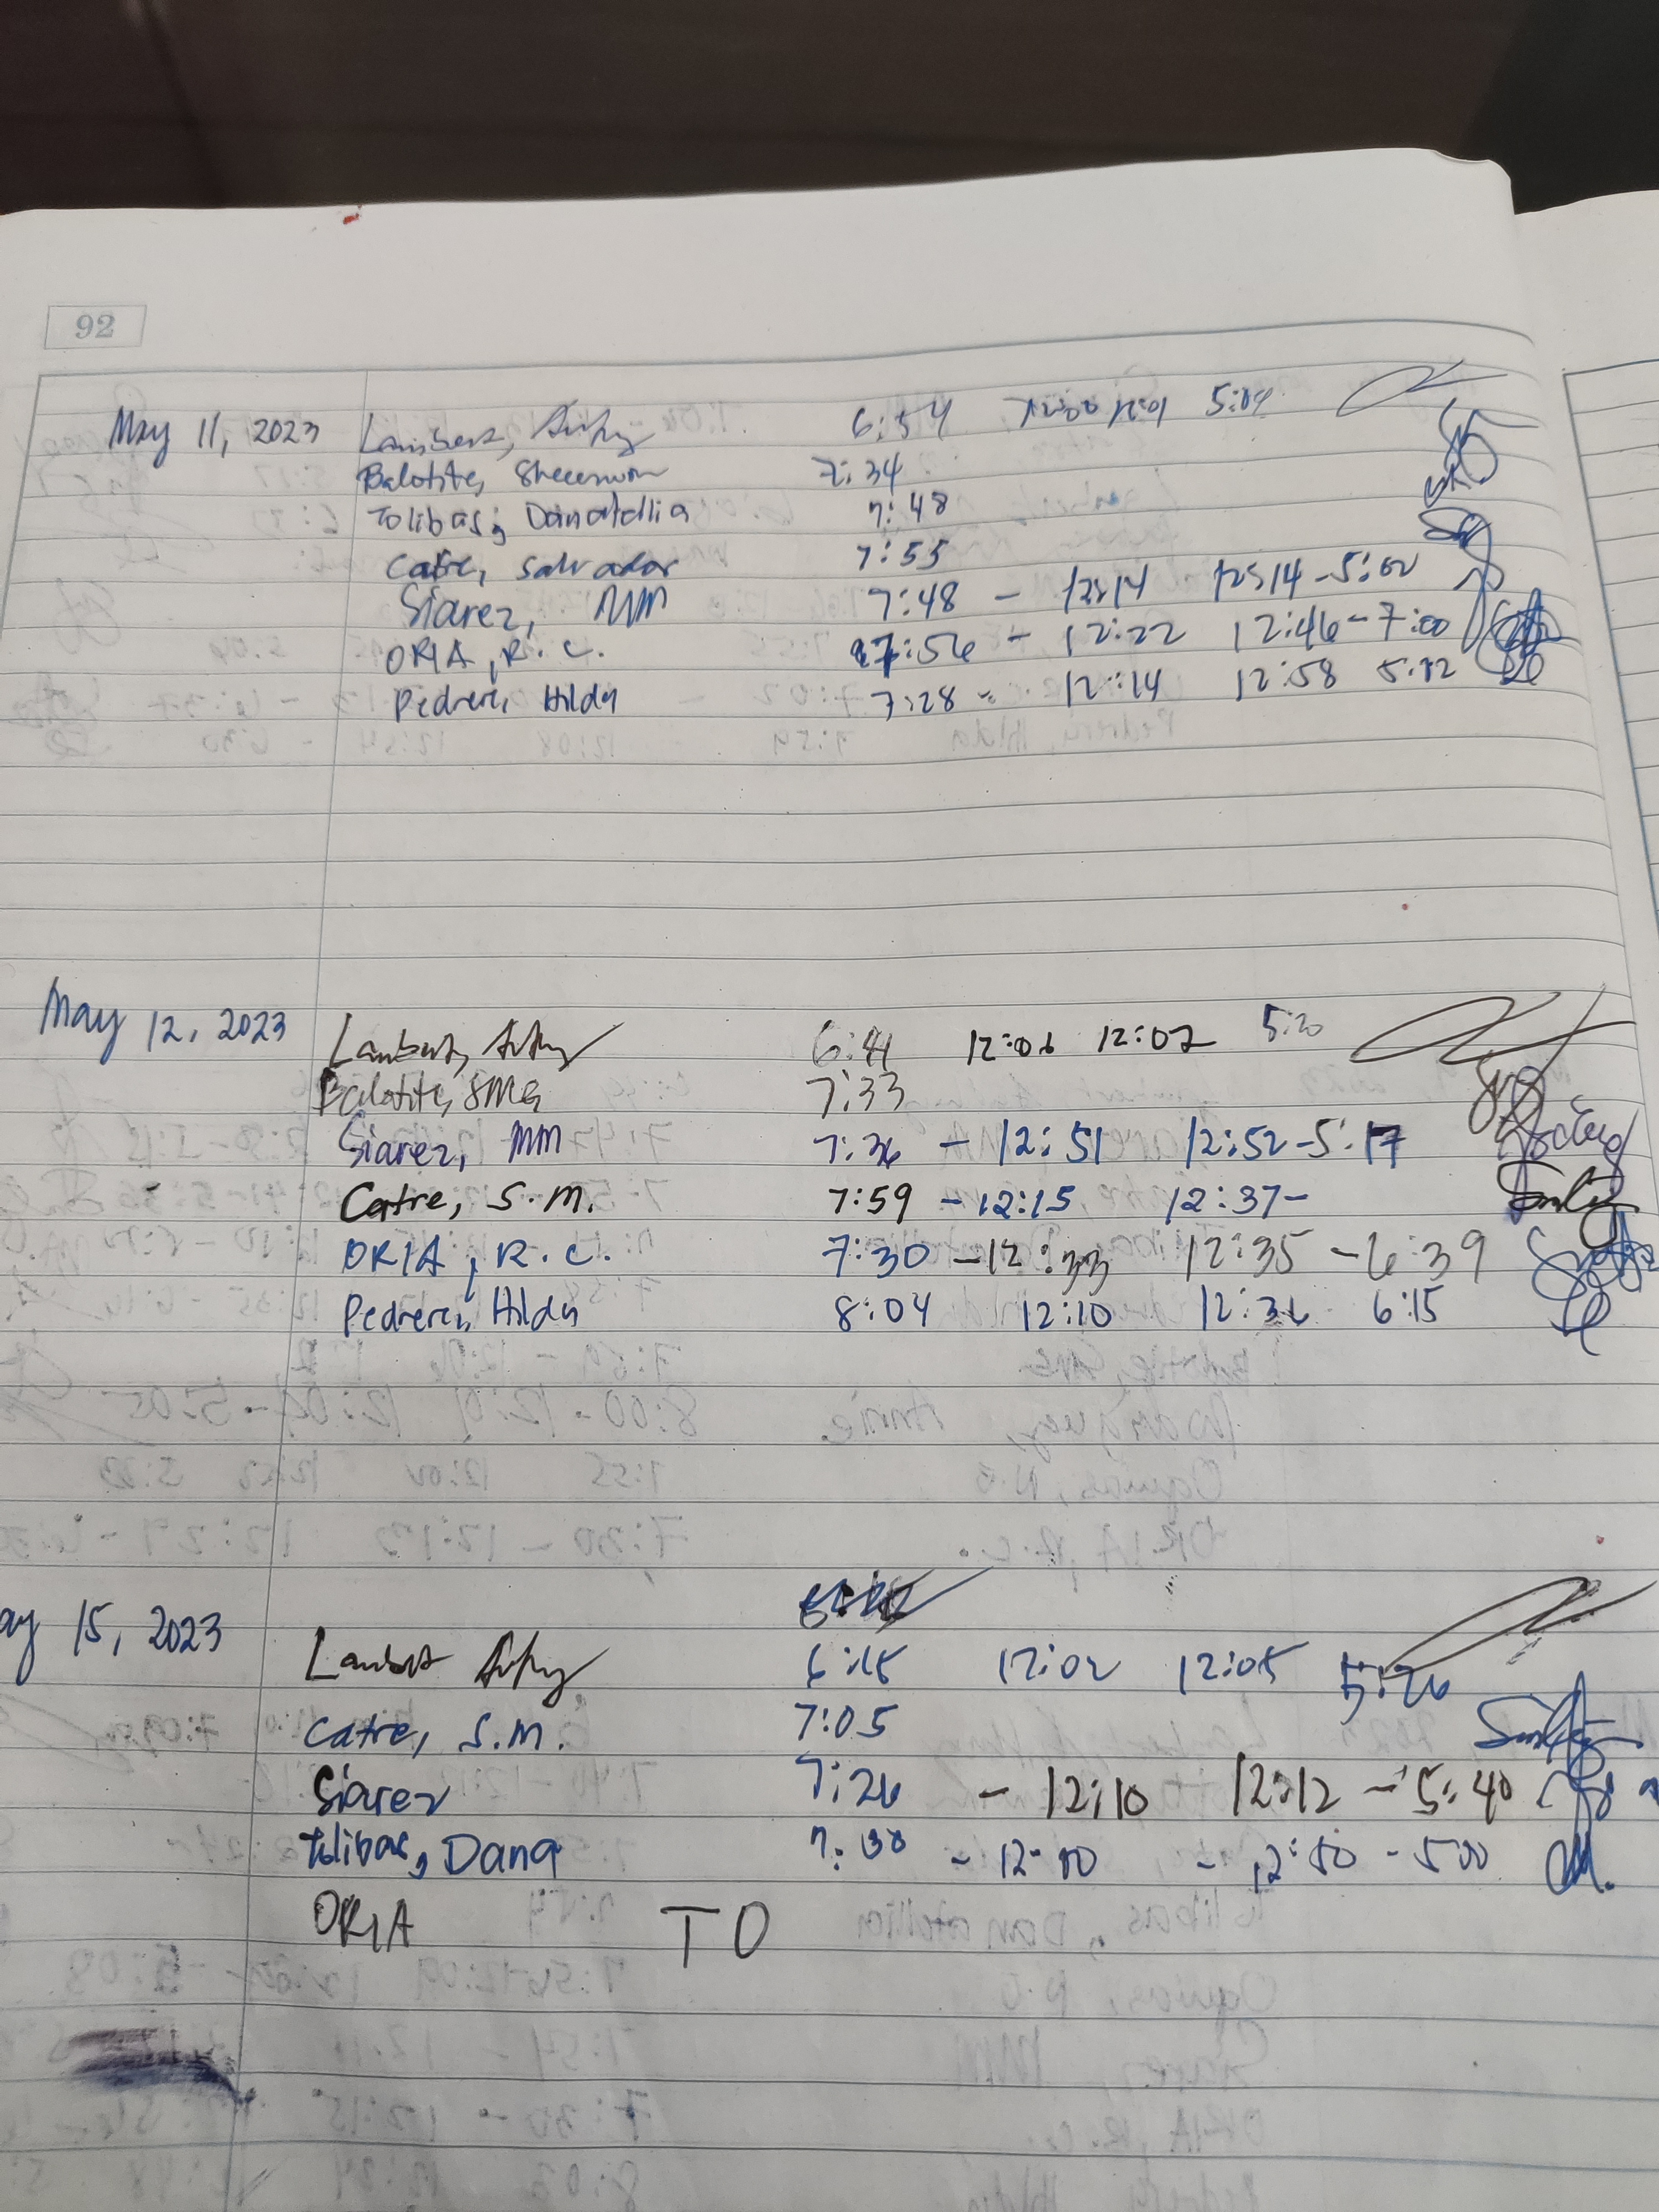 92
May 11, 2023 Lambert, 6:54 12:00 12:01 5:04
Balotite, 7:34
Tolibas, Danatellia 7:48
Catre, Salvador 7:55
Siarez, MM 7:48 - 12:14 12:14 - 5:00
ORIA, R. C. 7:56 - 12:22 12:46 - 7:00
Pedrera, Hilda 7:28 - 12:14 12:58 5:12
May 12, 2023 Lambert, 6:41 12:06 12:07 5:20
Balotite, SMG 7:33
Siarez, MM 7:36 - 12:51 12:52 - 5:17
Catre, S.M. 7:59 - 12:15 12:37 -
ORIA, R. C. 7:30 - 12:33 12:35 - 6:39
Pedrera, Hilda 8:04 12:10 12:36 6:15
ay 15, 2023 Lambert 6:15 12:02 12:05 5:26
Catre, S.M. 7:05
Siarez 7:26 - 12:10 12:12 - 5:40
Tolibas, Dana 7:30 - 12:10 - 12:50 - 5:00
ORIA TO